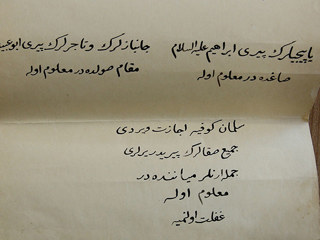 یاپیجیلرك پیری ابراهیم علیه السلام
صاغنده در معلوم اوله
جانبازلرك و تاجرلرك پیری ابو عبید
مقام صولنده در معلوم اوله
سلمان كوفیه اجازت ویردی
جمیع صقالرك پیریدر
جمله ارنلر میاننده در
معلوم اوله
غفلت اولنمیه